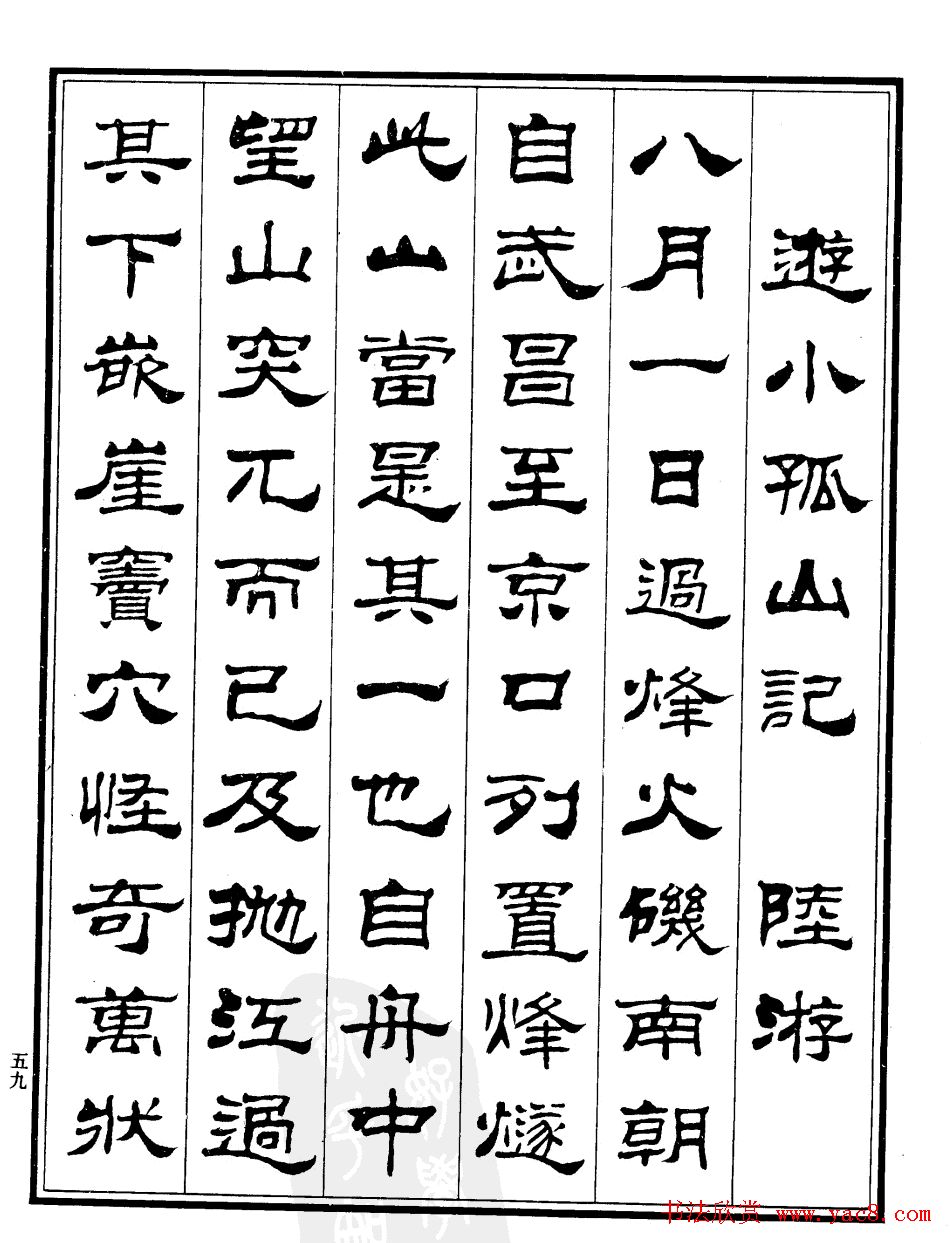 遊小孤山記　陸游
八月一日過烽火磯南朝
自武昌至京口列置烽燧
此山當是其一也自舟中
望山突兀而已及抛江過
其下嵌崖竇穴怪奇萬狀
五九
书法欣赏 www.yac8.com